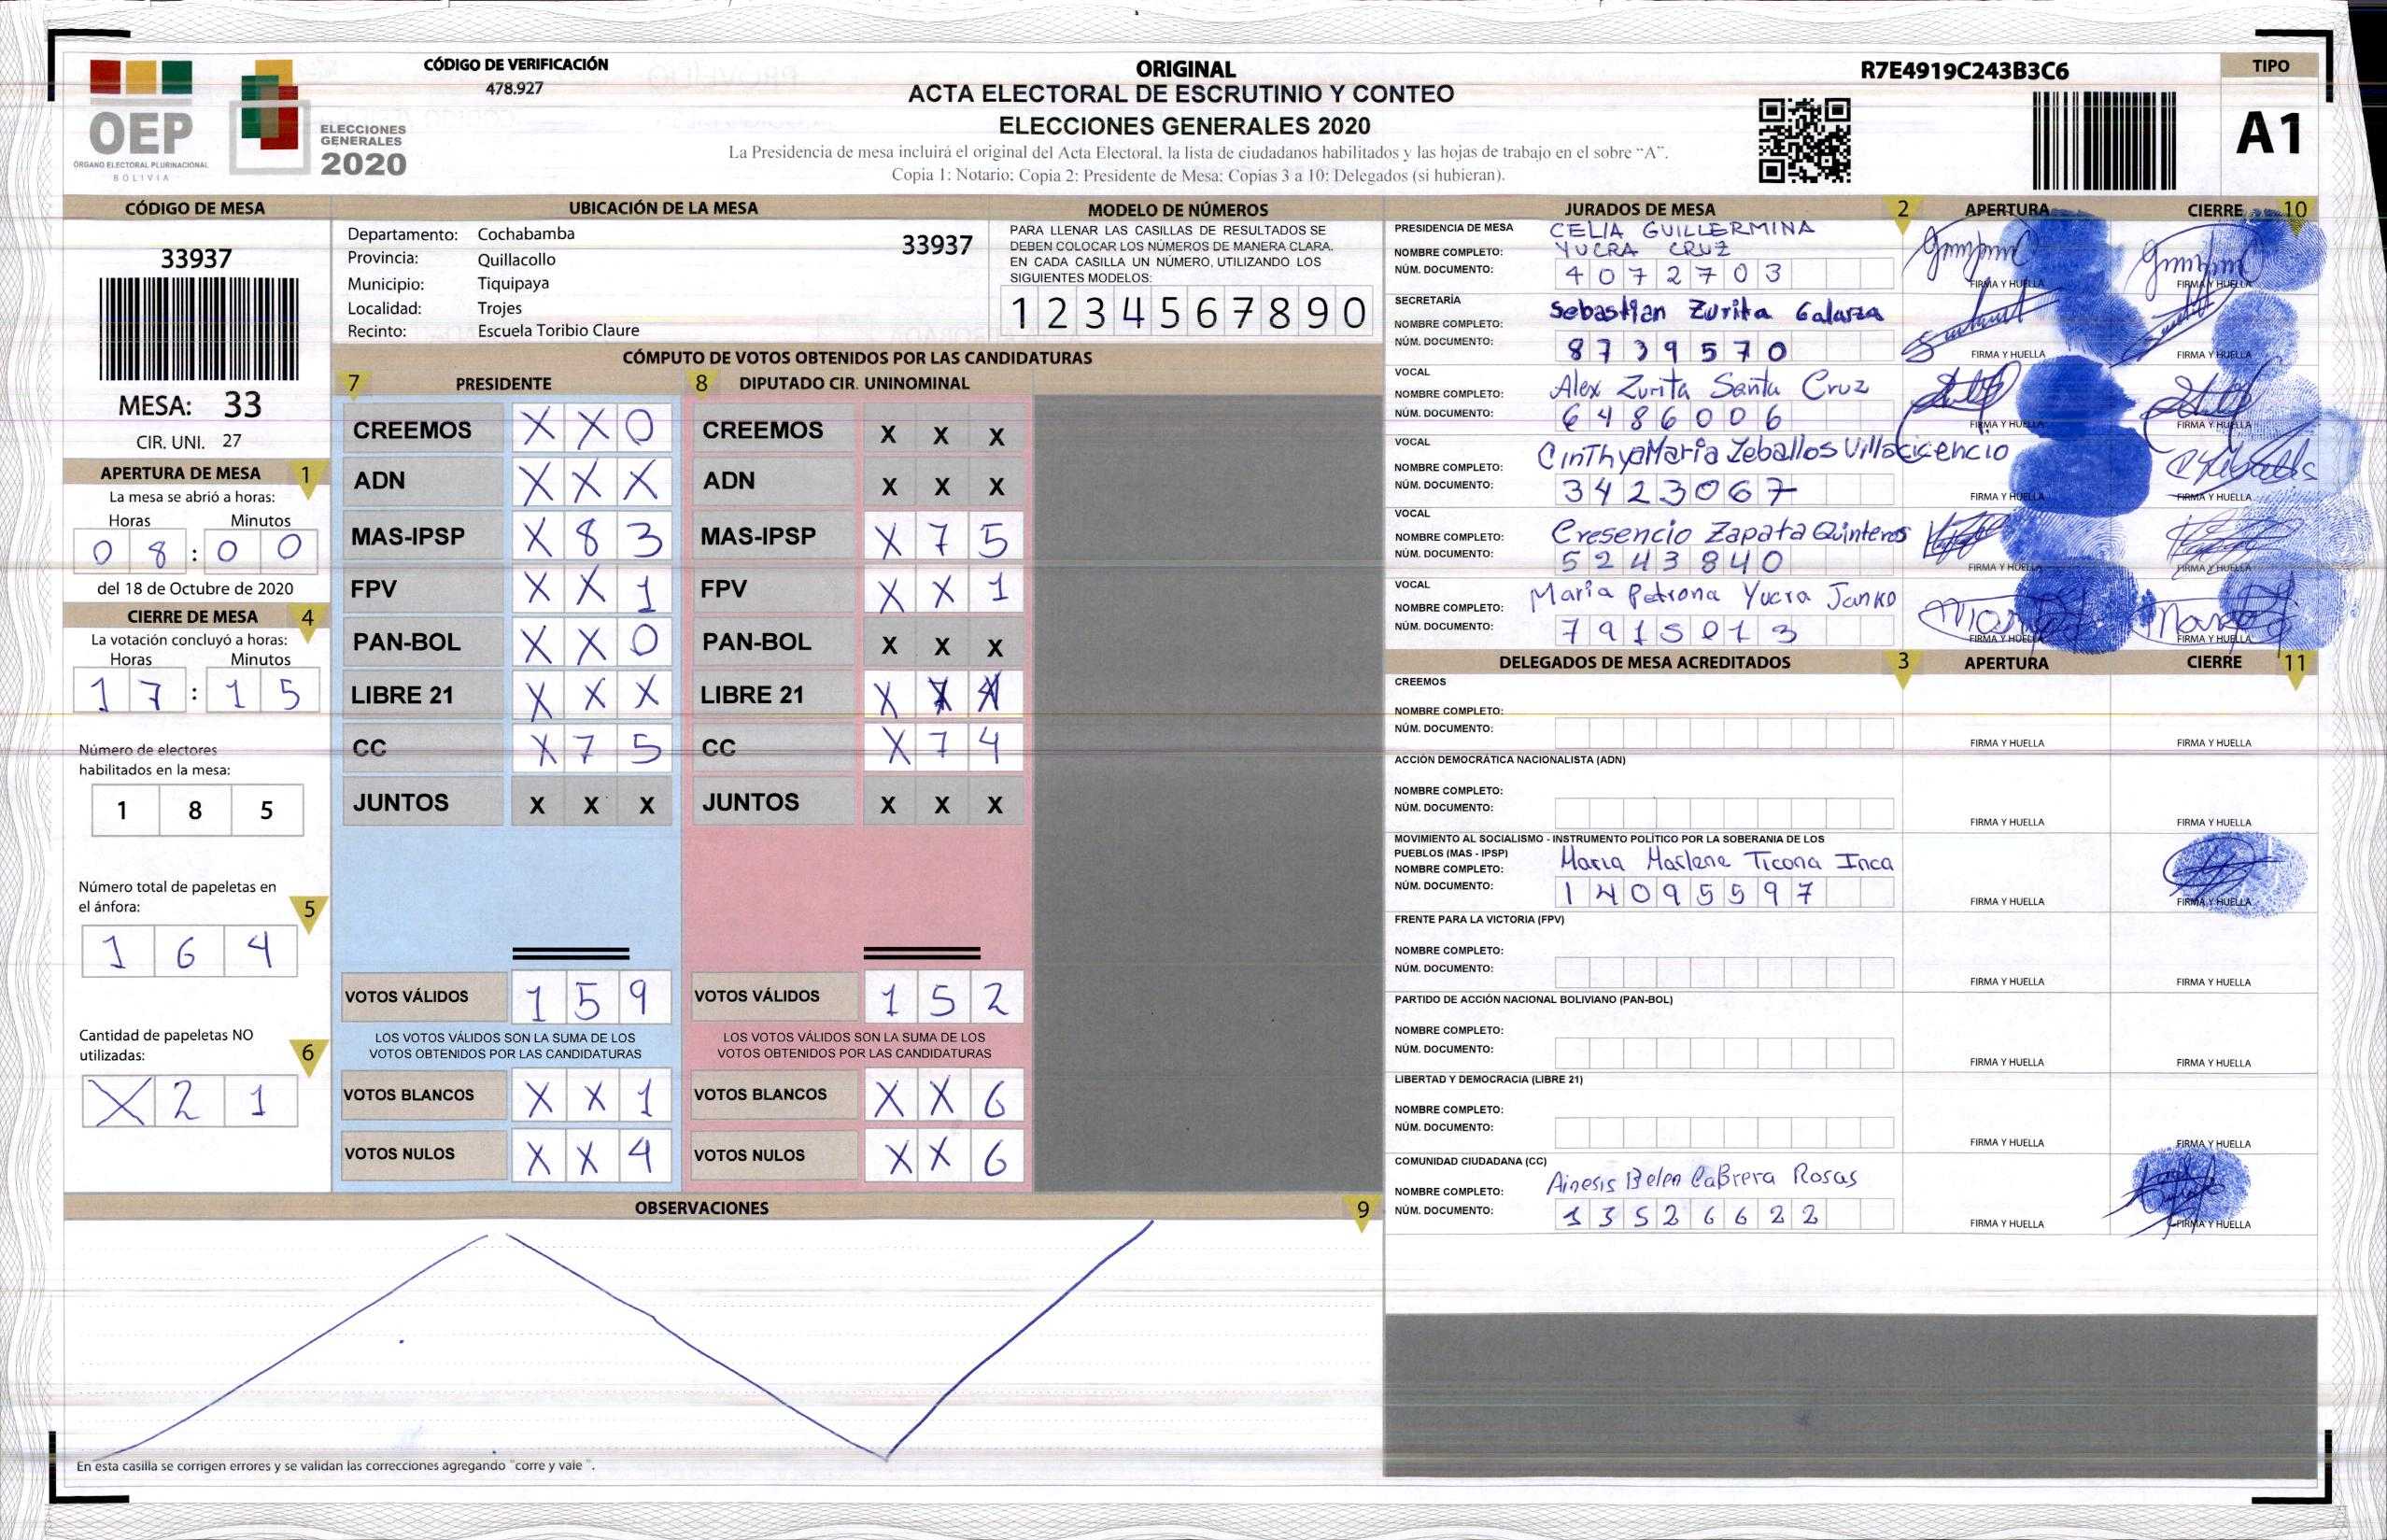 CÓDIGO DE VERIFICACIÓN
478.927
ORIGINAL
ACTA ELECTORAL DE ESCRUTINIO Y CONTEO
ELECCIONES GENERALES 2020
La Presidencia de mesa incluirá el original del Acta Electoral, la lista de ciudadanos habilitados y las hojas de trabajo en el sobre “A”.
Copia 1: Notario; Copia 2: Presidente de Mesa; Copias 3 a 10: Delegados (si hubieran).
R7E4919C243B3C6
TIPO
A1
OEP
ÓRGANO ELECTORAL PLURINACIONAL
BOLIVIA
ELECCIONES
GENERALES
2020
CÓDIGO DE MESA
33937
MESA: 33
CIR. UNI. 27
APERTURA DE MESA 1
La mesa se abrió a horas:
Horas Minutos
0 8 : 0 0
del 18 de Octubre de 2020
CIERRE DE MESA 4
La votación concluyó a horas:
Horas Minutos
1 7 : 1 5
Número de electores
habilitados en la mesa:
1 8 5
Número total de papeletas en
el ánfora: 5
1 6 4
Cantidad de papeletas NO
utilizadas: 6
X 2 1
UBICACIÓN DE LA MESA
Departamento: Cochabamba
33937
Provincia: Quillacollo
Municipio: Tiquipaya
Localidad: Trojes
Recinto: Escuela Toribio Claure
MODELO DE NÚMEROS
PARA LLENAR LAS CASILLAS DE RESULTADOS SE
DEBEN COLOCAR LOS NÚMEROS DE MANERA CLARA.
EN CADA CASILLA UN NÚMERO, UTILIZANDO LOS
SIGUIENTES MODELOS:
1 2 3 4 5 6 7 8 9 0
CÓMPUTO DE VOTOS OBTENIDOS POR LAS CANDIDATURAS
7 PRESIDENTE
CREEMOS X X 0
ADN X X X
MAS-IPSP X 8 3
FPV X X 1
PAN-BOL X X 0
LIBRE 21 X X X
CC X 7 5
JUNTOS X X X
VOTOS VÁLIDOS 1 5 9
LOS VOTOS VÁLIDOS SON LA SUMA DE LOS
VOTOS OBTENIDOS POR LAS CANDIDATURAS
VOTOS BLANCOS X X 1
VOTOS NULOS X X 4
8 DIPUTADO CIR. UNINOMINAL
CREEMOS X X X
ADN X X X
MAS-IPSP X 7 5
FPV X X 1
PAN-BOL X X X
LIBRE 21 X
CC X 7 4
JUNTOS X X X
VOTOS VÁLIDOS 1 5 2
LOS VOTOS VÁLIDOS SON LA SUMA DE LOS
VOTOS OBTENIDOS POR LAS CANDIDATURAS
VOTOS BLANCOS X X 6
VOTOS NULOS X X 6
OBSERVACIONES 9
En esta casilla se corrigen errores y se validan las correcciones agregando "corre y vale".
JURADOS DE MESA 2 APERTURA CIERRE 10
PRESIDENCIA DE MESA CELIA GUILLERMINA
NOMBRE COMPLETO: YUCRA CRUZ
NÚM. DOCUMENTO: 4072703
FIRMA Y HUELLA FIRMA Y HUELLA
SECRETARÍA
NOMBRE COMPLETO: Sebastian Zurita Galarza
NÚM. DOCUMENTO: 8739570
FIRMA Y HUELLA FIRMA Y HUELLA
VOCAL
NOMBRE COMPLETO: Alex Zurita Santa Cruz
NÚM. DOCUMENTO: 6486006
FIRMA Y HUELLA FIRMA Y HUELLA
VOCAL
NOMBRE COMPLETO: CinThya Maria Zeballos Villacicencio
NÚM. DOCUMENTO: 3423067
FIRMA Y HUELLA FIRMA Y HUELLA
VOCAL
NOMBRE COMPLETO: Cresencio Zapata Quinteros
NÚM. DOCUMENTO: 5243840
FIRMA Y HUELLA FIRMA Y HUELLA
VOCAL
NOMBRE COMPLETO: Maria Petrona Yucra Janko
NÚM. DOCUMENTO: 7915013
FIRMA Y HUELLA FIRMA Y HUELLA
DELEGADOS DE MESA ACREDITADOS 3 APERTURA CIERRE 11
CREEMOS
NOMBRE COMPLETO:
NÚM. DOCUMENTO:
FIRMA Y HUELLA FIRMA Y HUELLA
ACCIÓN DEMOCRÁTICA NACIONALISTA (ADN)
NOMBRE COMPLETO:
NÚM. DOCUMENTO:
FIRMA Y HUELLA FIRMA Y HUELLA
MOVIMIENTO AL SOCIALISMO - INSTRUMENTO POLÍTICO POR LA SOBERANIA DE LOS
PUEBLOS (MAS - IPSP)
NOMBRE COMPLETO: Maria Marlene Ticona Inca
NÚM. DOCUMENTO: 14095597
FIRMA Y HUELLA FIRMA Y HUELLA
FRENTE PARA LA VICTORIA (FPV)
NOMBRE COMPLETO:
NÚM. DOCUMENTO:
FIRMA Y HUELLA FIRMA Y HUELLA
PARTIDO DE ACCIÓN NACIONAL BOLIVIANO (PAN-BOL)
NOMBRE COMPLETO:
NÚM. DOCUMENTO:
FIRMA Y HUELLA FIRMA Y HUELLA
LIBERTAD Y DEMOCRACIA (LIBRE 21)
NOMBRE COMPLETO:
NÚM. DOCUMENTO:
FIRMA Y HUELLA FIRMA Y HUELLA
COMUNIDAD CIUDADANA (CC)
NOMBRE COMPLETO: Ainesis Belen CaBrera Rosas
NÚM. DOCUMENTO: 13526622
FIRMA Y HUELLA FIRMA Y HUELLA